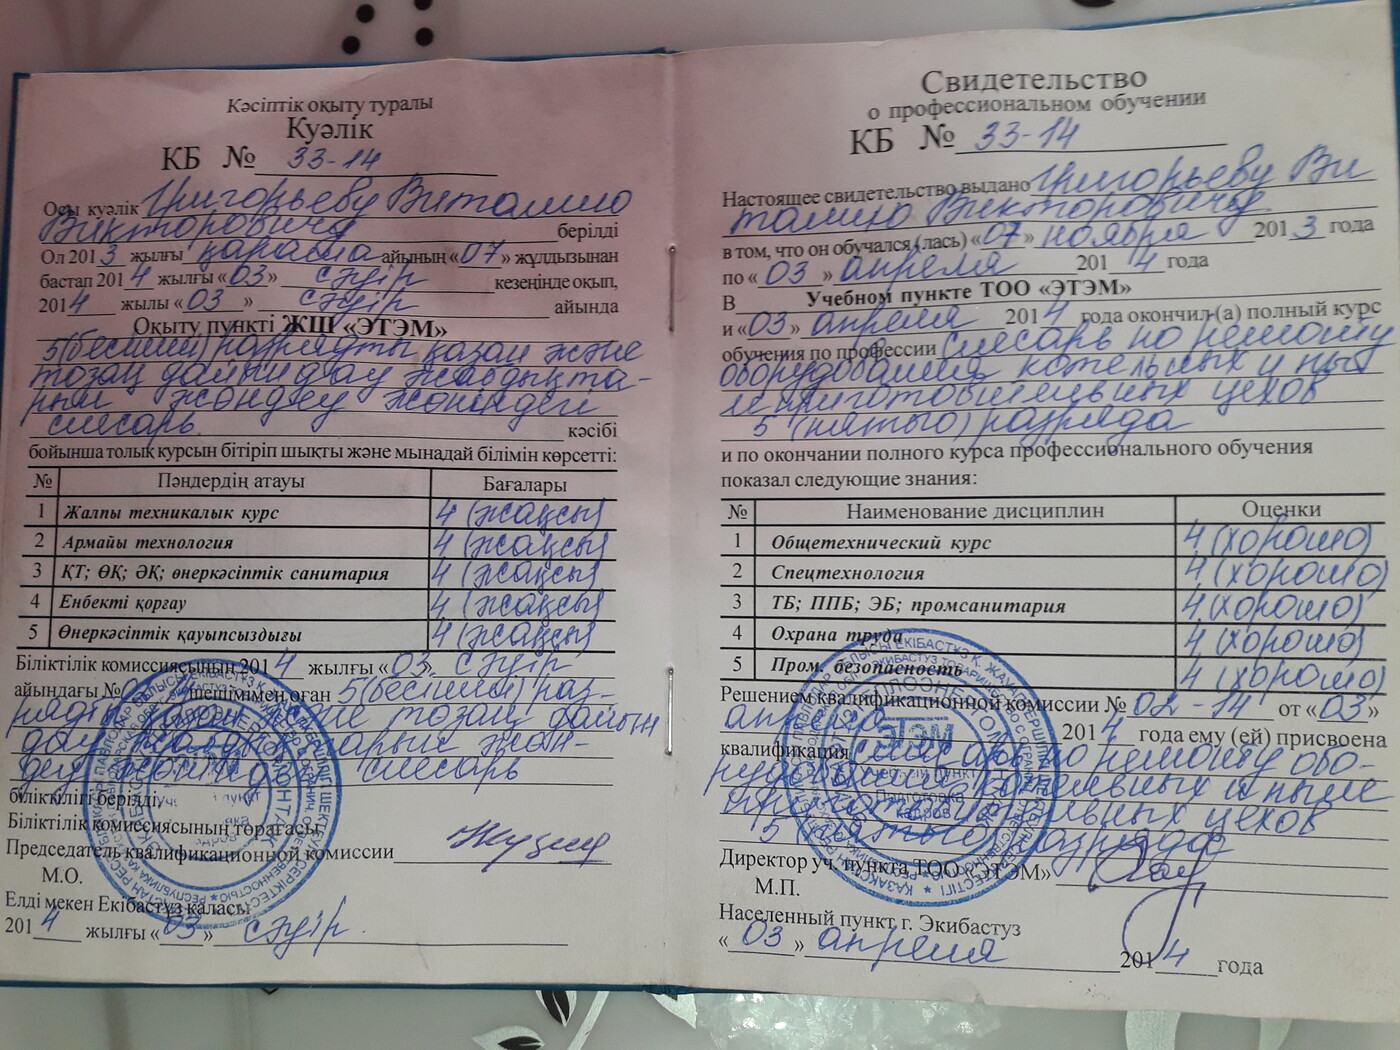 Кәсіптік оқыту туралы
Куәлік
КБ № 33-14
Осы куәлік Григорьеву Виталию
Викторовичу берілді
Ол 2013 жылғы қараша айының «07» жұлдызынан
бастап 2014 жылғы «03» сәуір кезеңінде оқып,
2014 жылы «03» сәуір айында
Оқыту пункті ЖШ «ЭТЭМ»
5(бесінші) разрядты қазан және
тозаң дайындау жабдықта-
рын жөндеу жөніндегі
слесарь кәсібі
бойынша толық курсын бітіріп шықты және мынадай білімін көрсетті:
№ Пәндердің атауы Бағалары
1 Жалпы техникалық курс 4 (жақсы)
2 Армайы технология 4 (жақсы)
3 ҚТ; ӨҚ; ӘҚ; өнеркәсіптік санитария 4 (жақсы)
4 Енбекті қорғау 4 (жақсы)
5 Өнеркәсіптік қауыпсыздығы 4 (жақсы)
Біліктілік комиссиясының 2014 жылғы «03» сәуір
айындағы № шешімімен оған 5(бесінші) раз-
рядты және тозаң дайын
дау жабдықтарын жөн-
деу слесарь
біліктілігі берілді
Біліктілік комиссиясының төрағасы
Председатель квалификационной комиссии
М.О.
Елді мекен Екібастұз қаласы
2014 жылғы «03» сәуір
Свидетельство
о профессиональном обучении
КБ № 33-14
Настоящее свидетельство выдано Григорьеву Ви
талию Викторовичу
в том, что он обучался (лась) «07» ноября 2013 года
по «03» апреля 2014 года
В Учебном пункте ТОО «ЭТЭМ»
и «03» апреля 2014 года окончил-(а) полный курс
обучения по профессии слесарь по ремонту
оборудования котельных и пыл
леприготовительных цехов
5 (пятого) разряда
и по окончании полного курса профессионального обучения
показал следующие знания:
№ Наименование дисциплин Оценки
1 Общетехнический курс 4 (хорошо)
2 Спецтехнология 4 (хорошо)
3 ТБ; ППБ; ЭБ; промсанитария 4 (хорошо)
4 Охрана труда 4 (хорошо)
5 Пром. безопасность 4 (хорошо)
Решением квалификационной комиссии № 02-14 от «03»
апреля 2014 года ему (ей) присвоена
квалификация слесарь по ремонту обо-
рудования котельных и пыле
приготовительных цехов
5 (пятого) разряда
ЭТЭМ
Учебный пункт
Подготовка
кадров
Директор уч. пункта ТОО «ЭТЭМ»
М.П.
Населенный пункт г. Экибастуз
«03» апреля 2014 года